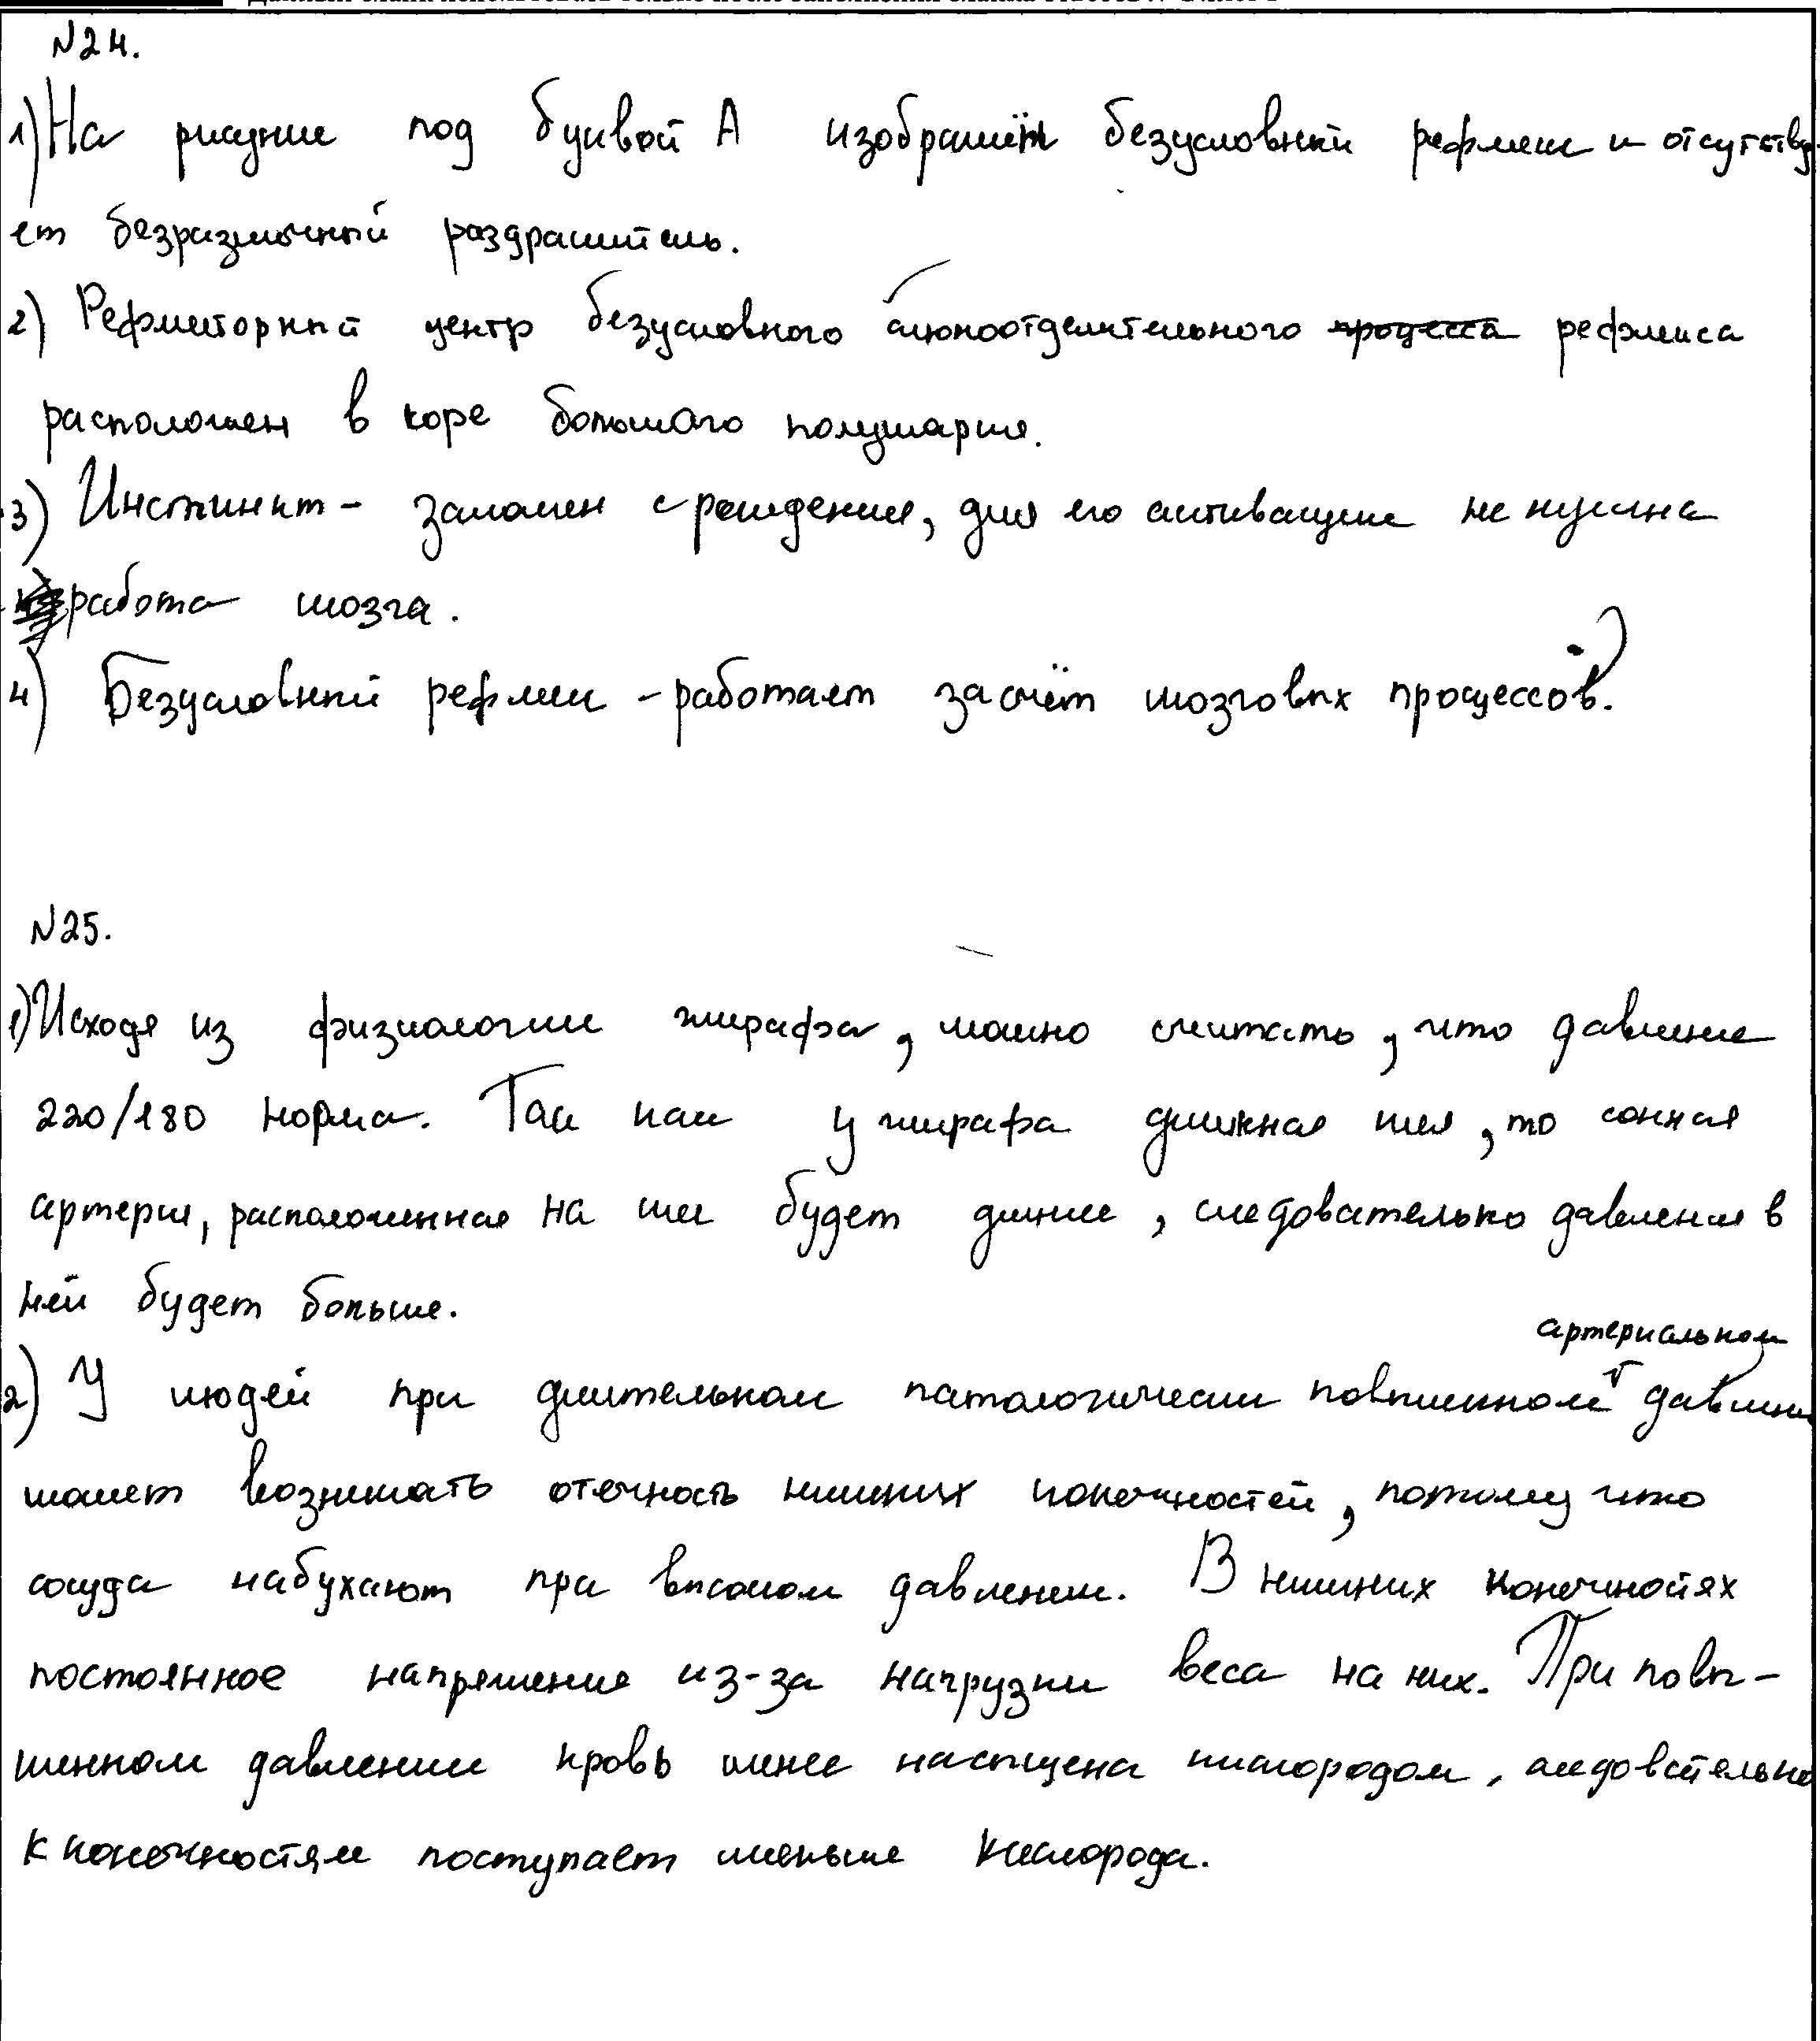 N24.
1) На рисунке под буквой А изображён безусловный рефлекс и отсутству
ет безразличный раздражитель.
2) Рефлекторный центр безусловного слюноотделительного процесса рефлекса
расположен в коре большого полушария.
3) Инстинкт - заложен с рождения, для его активации не нужна
работа мозга.
4) Безусловный рефлекс - работает за счёт мозговых процессов.
N25.
1) Исходя из физиологии жирафа, можно считать, что давление
220/180 норма. Так как у жирафа длинная шея, то сонная
артерия, расположенная на шее будет длинее, следовательно давления в
ней будет больше.
артериальном
2) У людей при длительном патологически повышенном давлении
может возникать отечность нижних конечностей, потому что
сосуда набухают при высоком давлении. В нижних конечностях
постоянное напряжение из-за нагрузки веса на них. При повы-
шенном давлении кровь менее насыщена кислородом, следовательно
к конечностям поступает меньше кислорода.